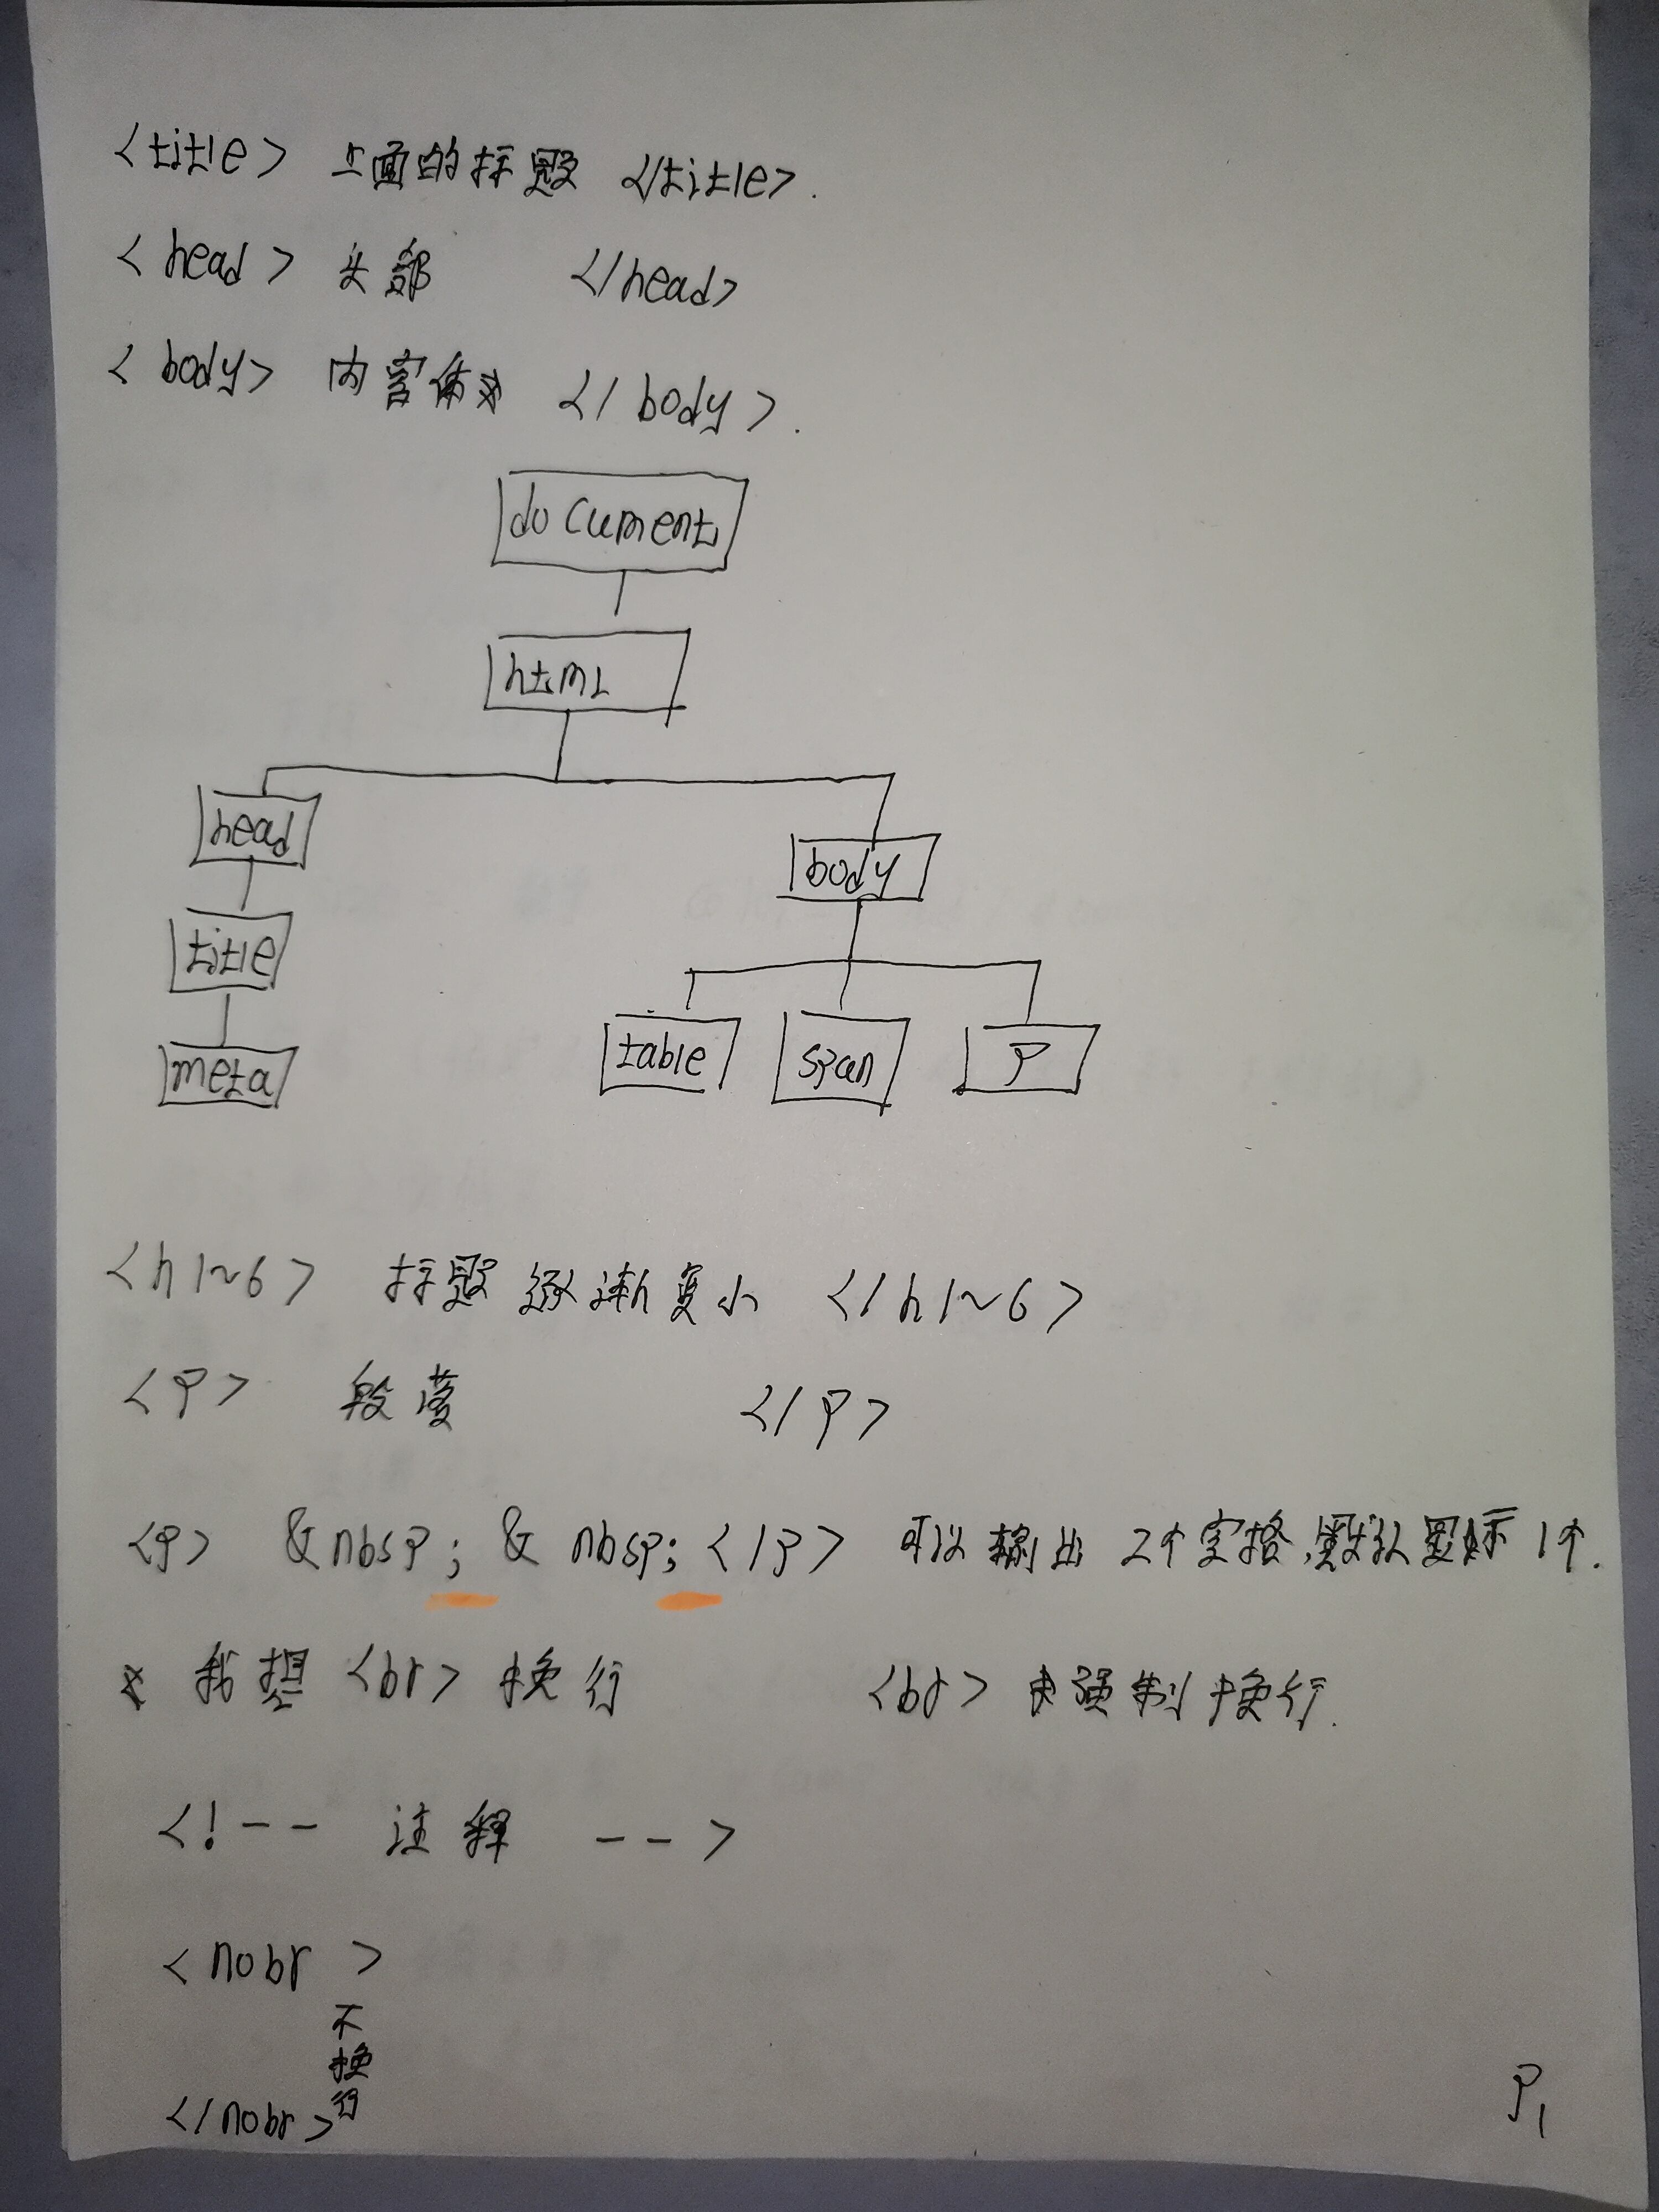 <title> 上面的标题 </title>.
<head> 头部 </head>
<body> 内容体 </body>.
document
html
head
body
title
meta
table span P
<h1~6> 标题逐渐变小 </h1~6>
<P> 段落 </P>
<P> &nbsP; & nbsp; </P> 可以输出 2个空格,默认显示 1个.
* 我想 <br> 换行 <br> 强制换行.
<!-- 注释 -->
<nobr >
不
换
行
</nobr>
P1